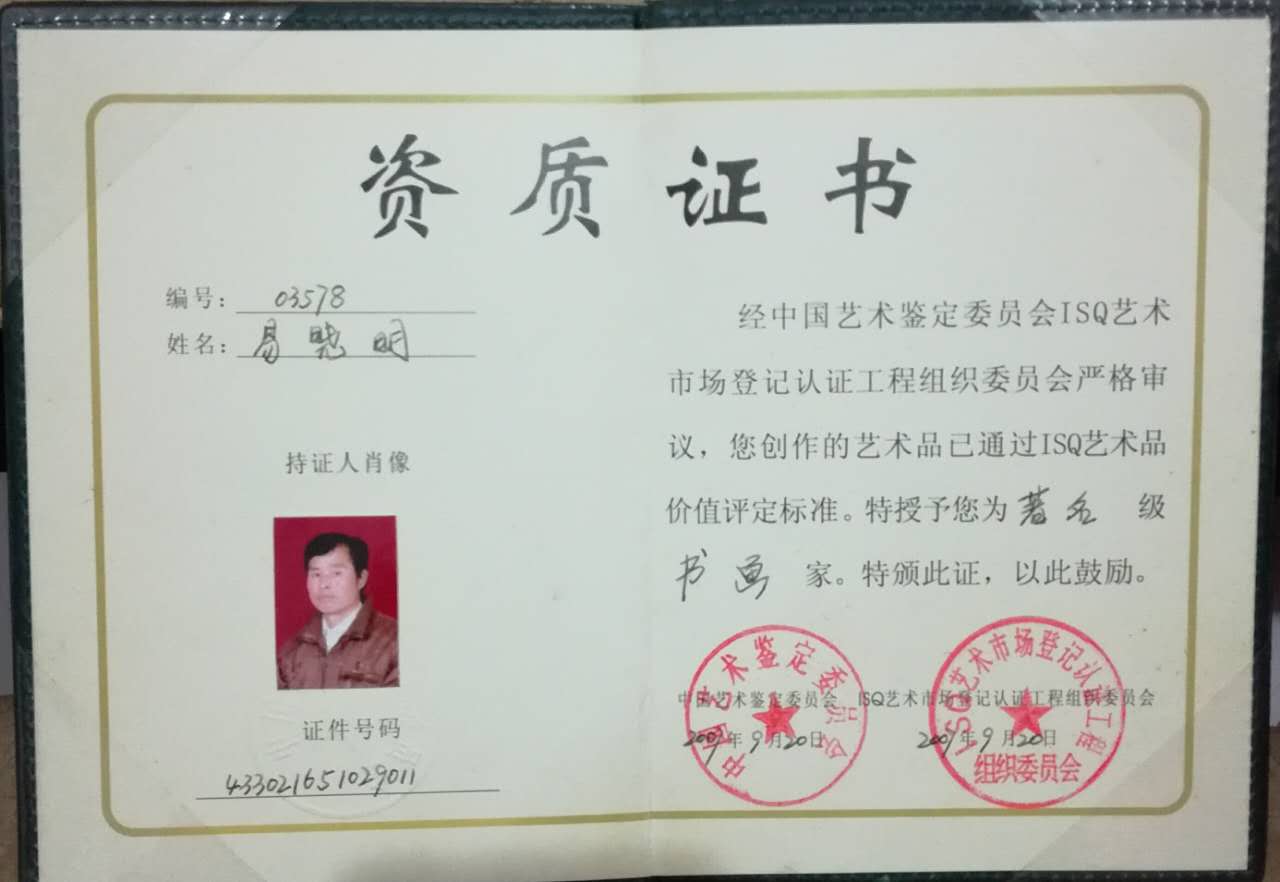 资质证书
编号：03578
姓名：易晓明
持证人肖像
证件号码
433021651029011
经中国艺术鉴定委员会ISQ艺术
市场登记认证工程组织委员会严格审
议，您创作的艺术品已通过ISQ艺术品
价值评定标准。特授予您为著名级
书画家。特颁此证，以此鼓励。
中国艺术鉴定委员会
2009年9月20日
ISQ艺术市场登记认证工程组织委员会
2009年9月20日
中国艺术鉴定委员会
ISQ艺术市场登记认证工程
组织委员会